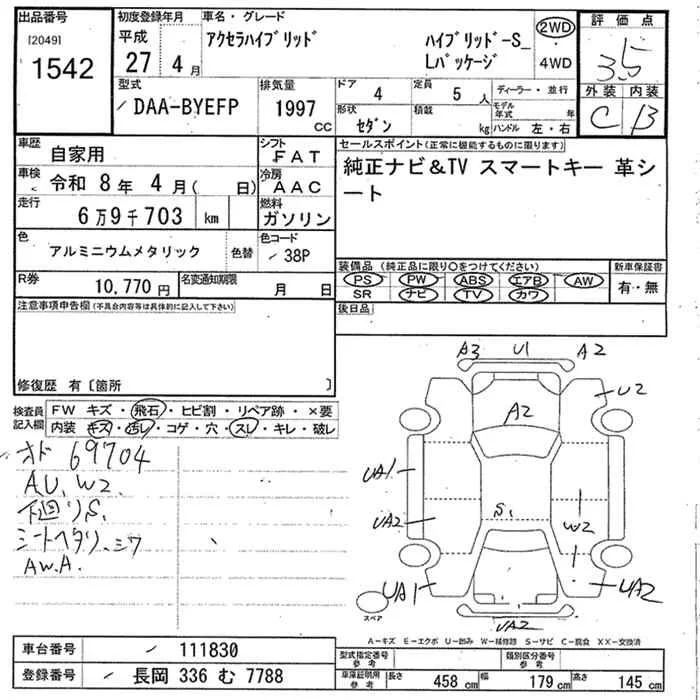 出品番号
[2049]
1542
初度登録年月
平成
27 4月
車名・グレード
アクセラハイブリッド
ハイブリッド-S_
Lパッケージ
2WD
・
4WD
評価点
3.5
外装 内装
C B
型式
DAA-BYEFP
排気量
1997
CC
ドア
4
定員
5人
ディーラー・並行
形状
セダン
積載
kg
モデル年式 年
ハンドル 左・右
車歴
自家用
シフト
FAT
車検
令和 8年 4月( 日)
冷房
AAC
走行
6万9千703 km
燃料
ガソリン
色
アルミニウムメタリック
色替
色コード
38P
R券
10,770円
名変通知期限
月 日
セールスポイント(正常に機能するものに限ります)
純正ナビ&TV スマートキー 革シ
ート
装備品 (純正品に限り○をつけてください)
PS PW ABS エアB AW
SR ナビ TV カワ
新車保証書
有・無
後日品
注意事項申告欄(不具合内容等は具体的に記入して下さい)
修復歴 有〔箇所 〕
検査員
記入欄
FW キズ・飛石・ヒビ割・リペア跡・×要
内装 キズ・汚レ・コゲ・穴・スレ・キレ・破レ
オド 69704
A,U,W2.
下廻りS.
シートヘタリ.シワ
AW.A.
A3 U1 A2
U2
A2
UA1
UA2
S1
W2
UA1
UA2
UA2
スペア
A-キズ E-エクボ U-凹み W-補修跡 S-サビ C-腐食 XX-交換済
車台番号
111830
登録番号
長岡 336 む 7788
型式指定番号
参考
類別区分番号
参考
車庫証明用
参考
長さ
458 cm
幅
179 cm
高さ
145 cm